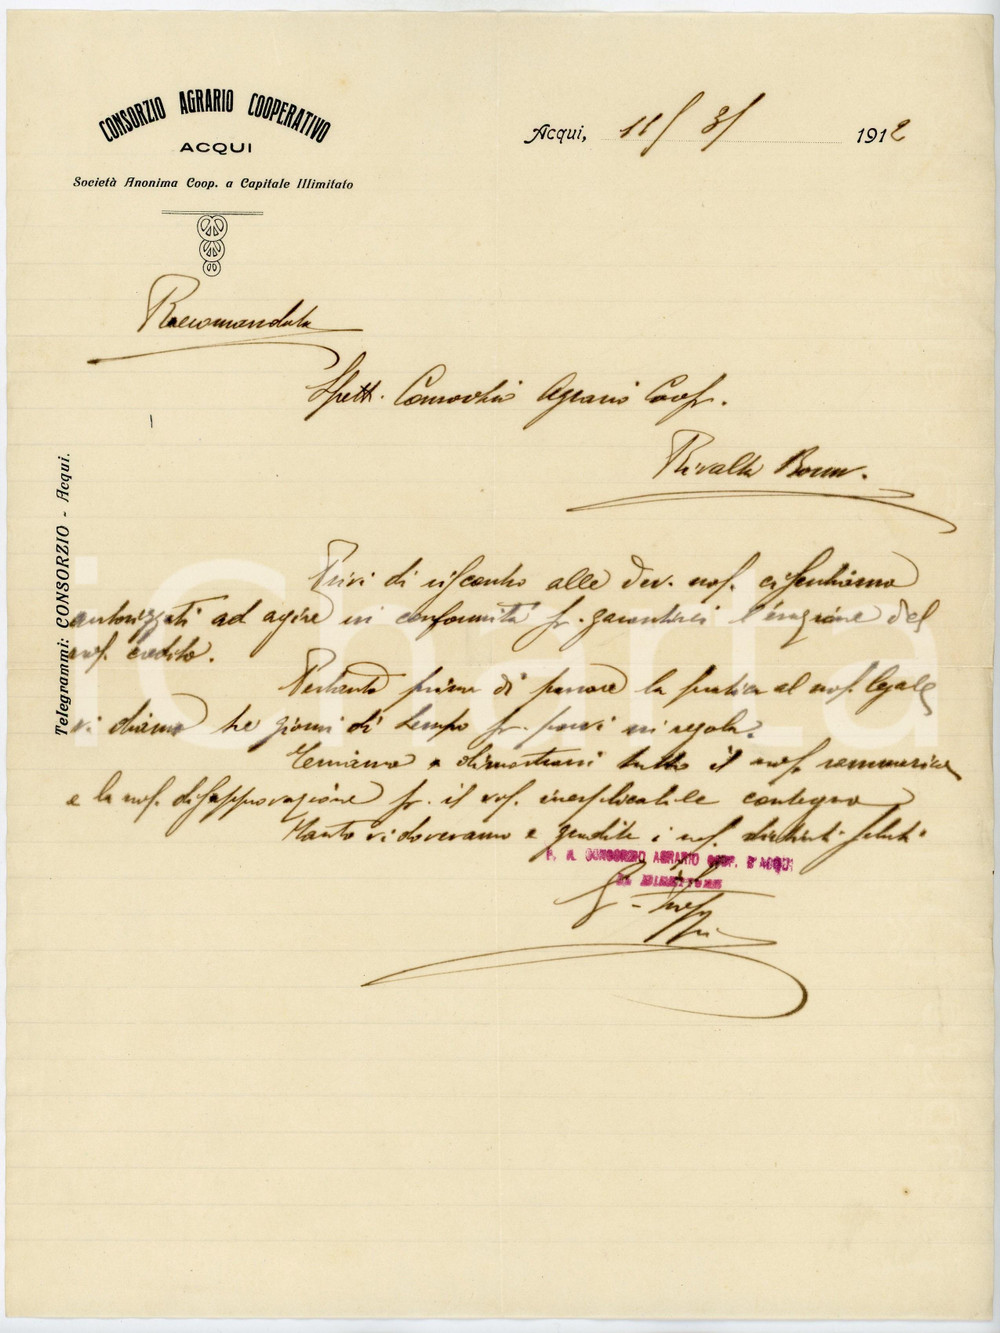 CONSORZIO AGRARIO COOPERATIVO
ACQUI
Società Anonima Coop. a Capitale Illimitato
Acqui, 11/ 3/ 1912
Raccomandata
Spett. Consorzio Agrario Coop.
Rivalta Borm.
Telegrammi: CONSORZIO - Acqui.
Privi di riscontro alle div. nos. ci sentiamo
autorizzati ad agire in conformità pr. garantirci l'esazione del
nos. credito.
Pertanto prima di passare la pratica al nos. legale
vi diamo tre giorni di tempo pr. porvi in regola.
Teniamo a dimostrarvi tutto il nos. rammarico
e la nos. disapprovazione pr. il vos. inesplicabile contegno
Tanto vi dovevamo e gradite i nos. distinti saluti
P. IL CONSORZIO AGRARIO COOP. D'ACQUI
IL DIRETTORE